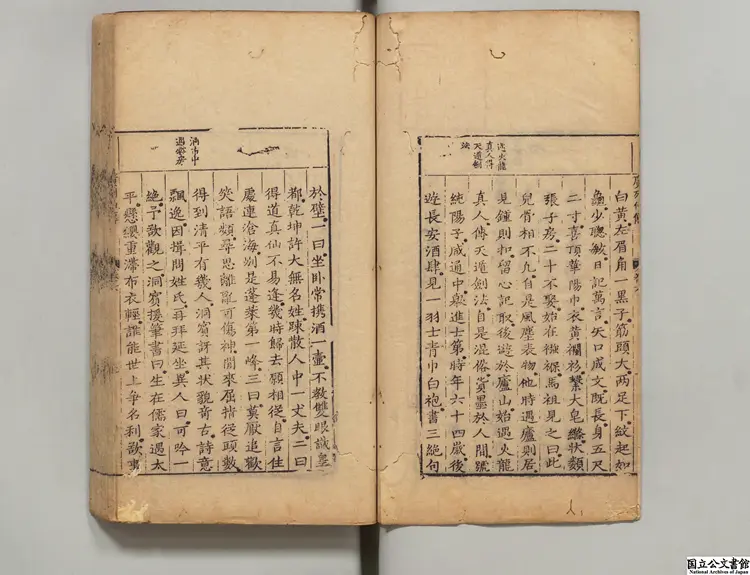 遇火龍
真人得
天遁劍
法
白黃左眉角一黑子筋頭大兩足下紋起如
龜少聰敏日記萬言矢口成文既長身五尺
二寸喜頂華陽巾衣黃襴衫繫大皂絛狀類
張子房二十不娶始在襁褓馬祖見之曰此
兒骨相不凡自是風塵表物他時遇廬則居
見鍾則扣留心記取後遊於廬山始遇火龍
真人傳天遁劍法自是混俗貨墨於人間號
純陽子咸通中舉進士第時年六十四歲後
遊長安酒肆見一羽士青巾白袍書三絕句
酒肆中
遇雲房
於壁一曰坐卧常携酒一壺不教雙眼識皇
都乾坤許大無名姓踈散人中一丈夫二曰
得道真仙不易逢幾時歸去願相從自言住
處連滄海別是蓬萊第一峰三曰莫厭追歡
笑語頻尋思離亂可傷神閒來屈指從頭數
得到清平有幾人洞賓訝其狀貌奇古詩意
飄逸因揖問姓氏再拜延坐異人曰可吟一
絕予欲觀之洞賓援筆書曰生在儒家遇太
平懸纓重滯布衣輕誰能世上爭名利欲事
国立公文書館
National Archives of Japan